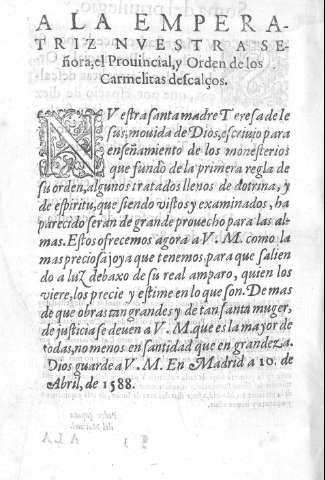 A LA EMPERA-
TRIZ NVESTRA SE-
ñora, el Prouincial, y Orden de los
Carmelitas descalços.
NVestra santa madre Teresa de Ie
sus, mouida de Dios, escriuio para
enseñamiento de los monesterios
que fundò de la primera regla de
su orden, algunos tratados llenos de dotrina, y
de espiritu, que siendo vistos y examinados, ha
parecido seràn de grande prouecho para las al-
mas. Estos ofrecemos agora a V. M. como la
mas preciosa joya que tenemos. para que salien
do a luz debaxo de su real amparo, quien los
viere, los precie y estime en lo que son. De mas
de que obras tan grandes y de tan santa muger,
de justicia se deuen a V. M. que es la mayor de
todas, no menos en santidad que en grandeza.
Dios guarde a V. M. En Madrid a 10. de
Abril, de 1588.
¶ 3
A LA